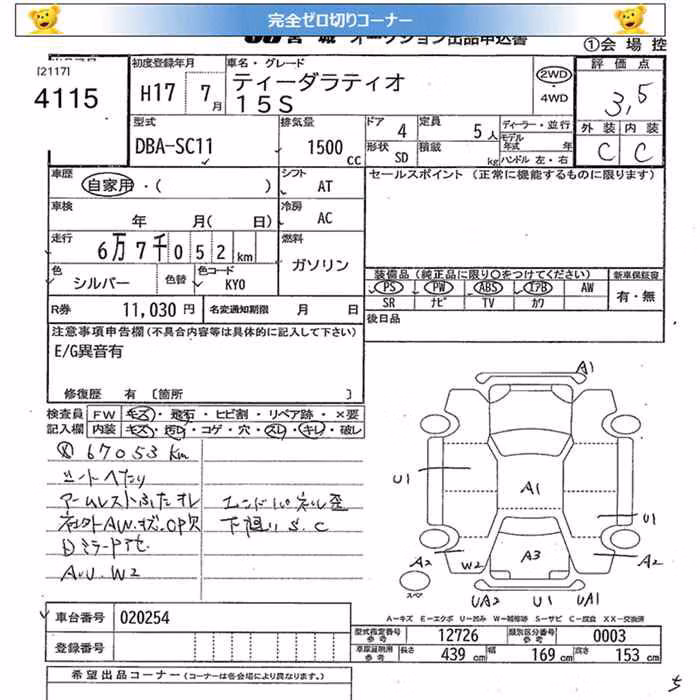 完全ゼロ切りコーナー
宮城 オークション出品申込書
①会 場 控
[2117]
4115
初度登録年月
H17 7月
車名・グレード
ティーダラティオ
15S
2WD
4WD
評 価 点
3,5
外 装 内 装
C C
型式
DBA-SC11
排気量
1500 cc
ドア 4
定員 5 人
形状 SD
積載 kg
ディーラー・並行
モデル年式 年
ハンドル 左・右
車歴
自家用・( )
シフト
AT
セールスポイント (正常に機能するものに限ります)
車検
年 月( 日)
冷房
AC
走行
6万7千052 km
燃料
ガソリン
色
シルバー
色替
色コード
KY0
装備品 (純正品に限り○をつけてください)
新車保証書
PS PW ABS エアB AW
SR ナビ TV カワ
有・無
R券 11,030 円
名変通知期限 月 日
後日品
注意事項申告欄 (不具合内容等は具体的に記入して下さい)
E/G異音有
修復歴 有 〔箇所 〕
検査員 記入欄
FW キズ・飛石・ヒビ割・リペア跡・×要
内装 キズ・汚レ・コゲ・穴・スレ・キレ・破レ
67053 km
シートへたり
アームレストふたオレ
社外AW.キズ.CP欠
Dミラードアセ
A.U.W2
エンドパネル歪
下廻り S.C
A1
U1
A1
U1
A2
W2
A3
A2
スペ
UA2
U1
UA1
A-キズ E-エクボ U-凹み W-補修跡 S-サビ C-腐食 XX-交換済
車台番号 020254
登録番号
型式指定番号 参考 12726
類別区分番号 参考 0003
車庫証明用 参考
長さ 439 cm
幅 169 cm
高さ 153 cm
希望出品コーナー (コーナーは各会場により異なります。)